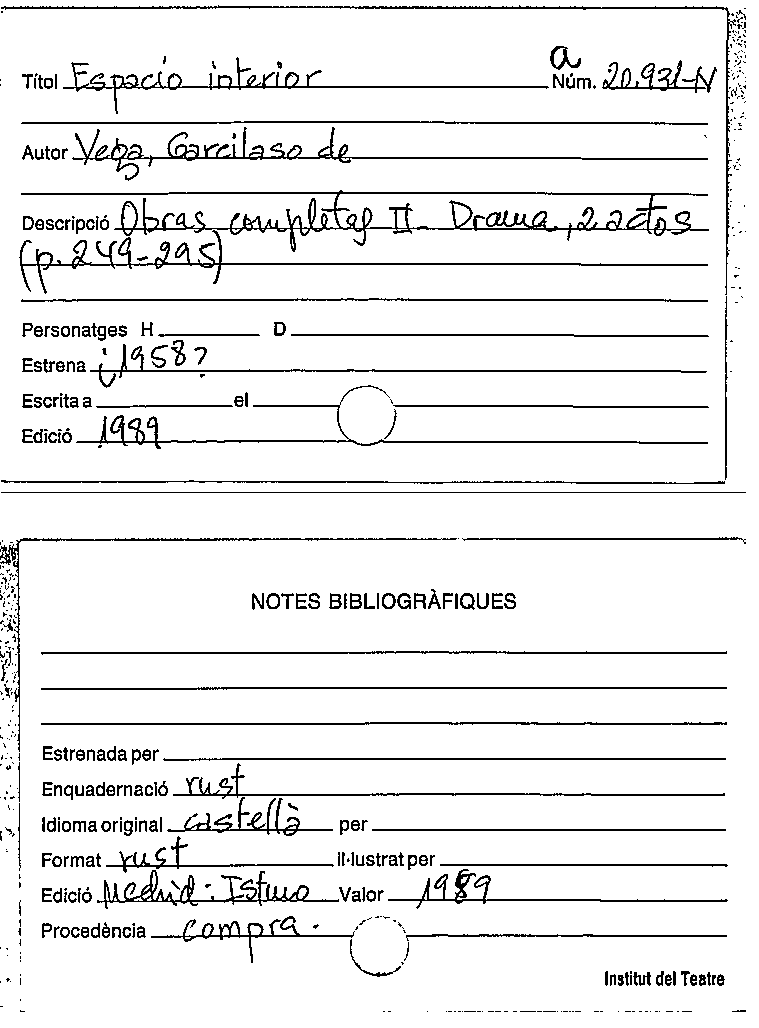 a
Títol Espacio interior Núm. 20.931-N
Autor Vega, Garcilaso de
Descripció Obras completas II - Drama, 2 actos
(p. 249-295)
Personatges H D
Estrena ¿1958?
Escrita a el
Edició 1989
NOTES BIBLIOGRÀFIQUES
Estrenada per
Enquadernació rust
Idioma original castellà per
Format rust il·lustrat per
Edició Madrid: Istmo Valor 1989
Procedència compra.
Institut del Teatre